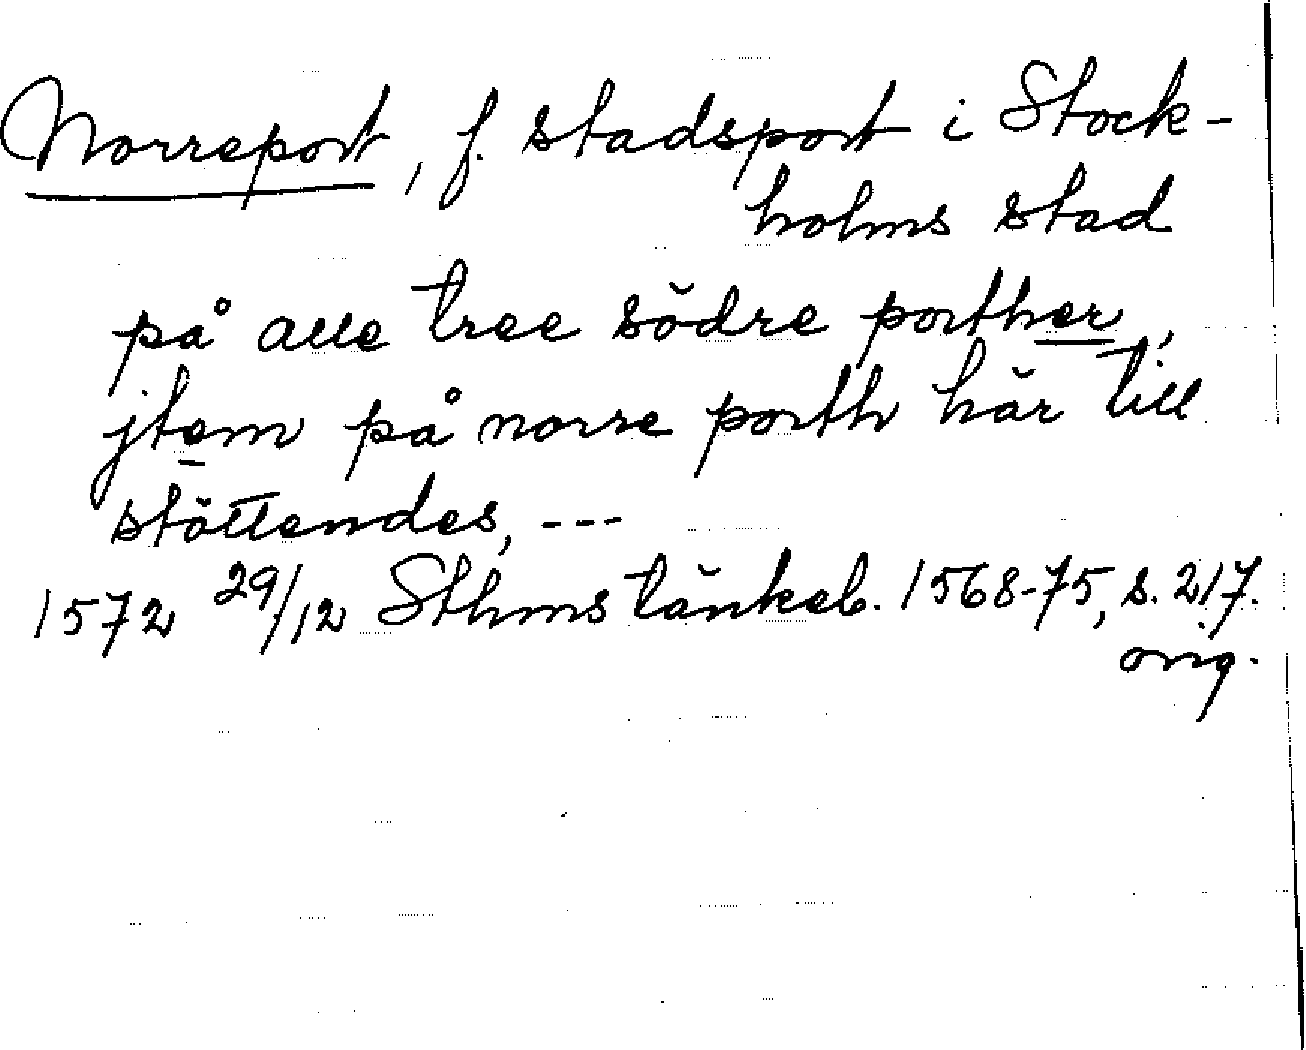 Norreport, f. stadsport i Stock-
holms stad
på alle tree södre porther,
jtem på norre porth här till
stöttendes, ---
1572 29/12 Sthms tänkeb. 1568-75, s. 217.
orig.